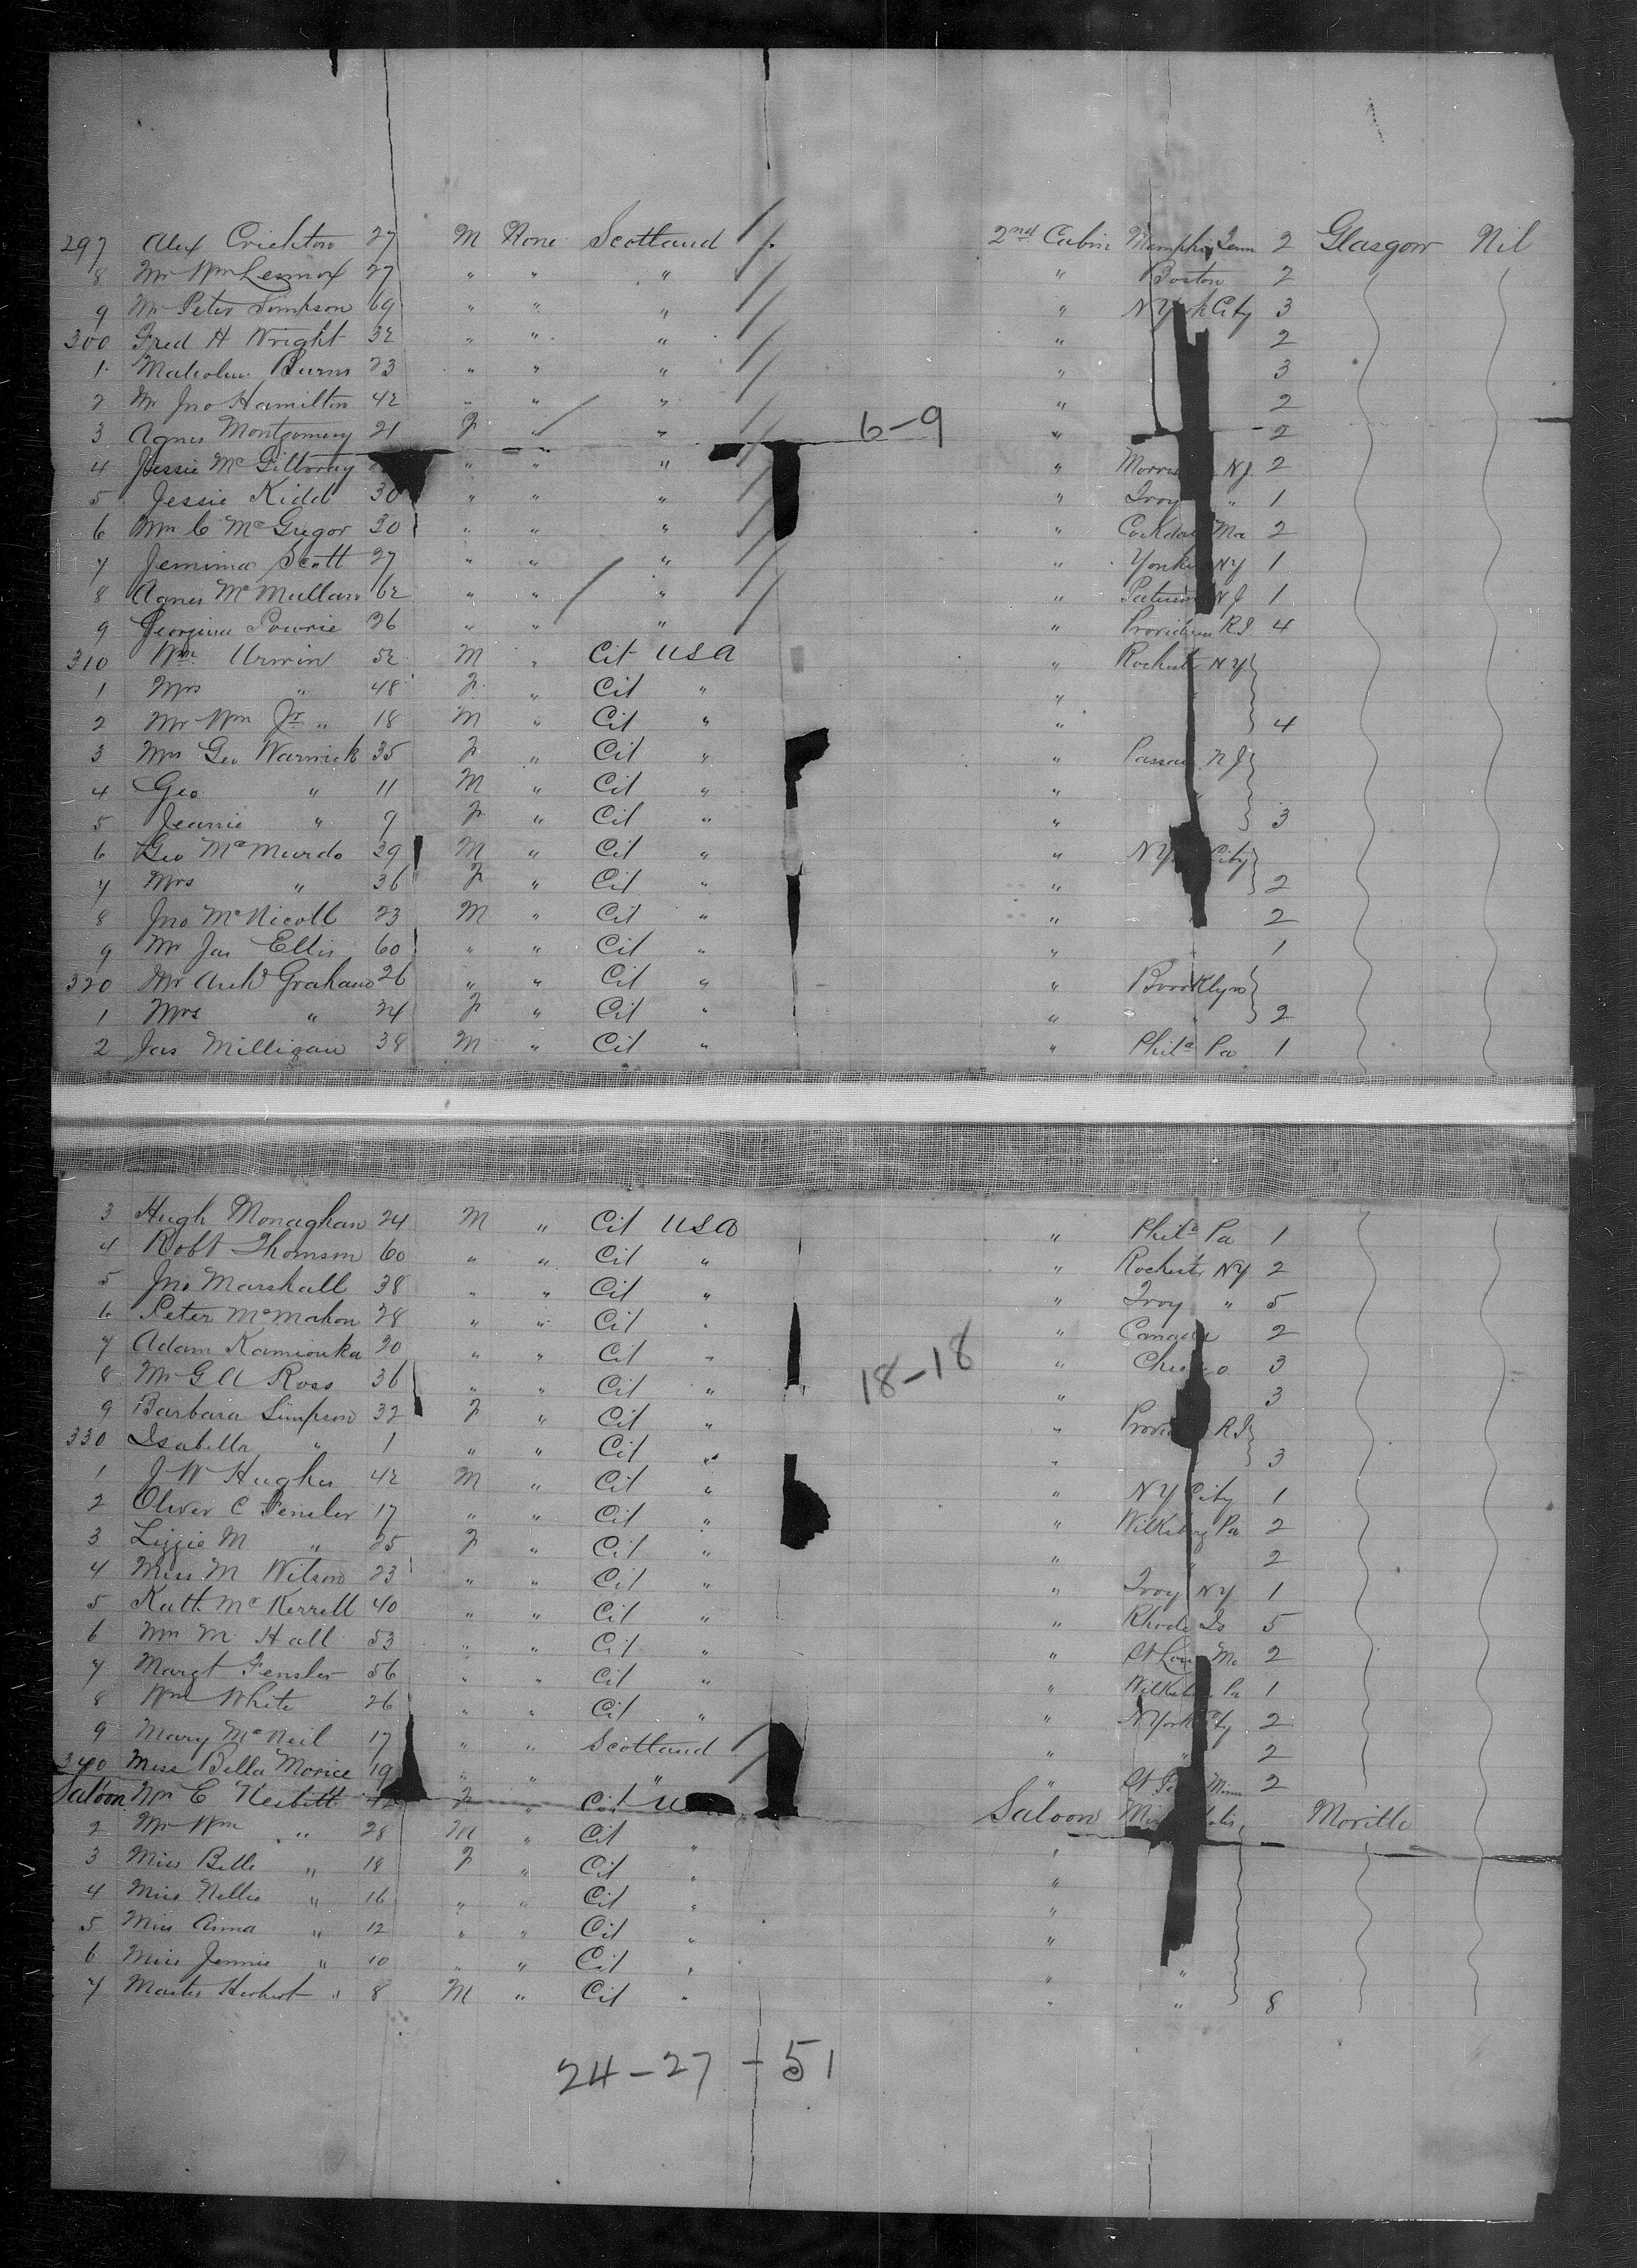 297 Alex Crichton 27 M None Scotland 2nd Cabin Memphis Tenn 2 Glasgow Nil
8 Mr Wm Lennox 27 " " " " Boston 2
9 Mr Peter Simpson 69 " " " " N York City 3
300 Fred H Wright 32 " " " " 2
1 Malcolm Burns 23 " " " " 3
2 Mr Jno Hamilton 42 " " " " 2
3 Agnes Montgomery 21 F " " 6-9 " 2
4 Jessie McGilvray " " " " NJ 2
5 Jessie Kidd 30 " " " " Troy " 1
6 C McGregor 30 " " " " 2
7 Jemima Scott 27 " " " " NY 1
8 Agnes McMullan 62 " " " " NJ 1
9 Georgina Powrie 26 " " " " Providence RI 4
310 Wm Urwin 52 M " Cit USA " Rochester NY
1 Mrs " 48 F " Cit " " "
2 Mr Wm Jr " 18 M " Cit " " 4
3 Mrs Geo Warwick 35 F " Cit " " NJ
4 Geo " 11 M " Cit " " "
5 Jeanie " 9 F " Cit " " 3
6 Geo McMurdo 39 M " Cit " " NY City
7 Mrs " 36 F " Cit " " 2
8 Jno McNicoll 23 M " Cit " " 2
9 Mr Jas Ellis 60 " " Cit " " " 1
320 Mr Archd Graham 26 " " Cit " " Brooklyn
1 Mrs " 24 F " Cit " " " 2
2 Jas Milligan 38 M " Cit " " Phila Pa 1
3 Hugh Monaghan 24 M " Cit USA " Phila Pa 1
4 Robt Thomson 60 " " Cit " " Rochester NY 2
5 Jno Marshall 38 " " Cit " " Troy " 5
6 Peter McMahon 28 " " Cit " " Canada 2
7 Adam Kamionka 20 " " Cit " " 3
8 Mr G A Ross 36 " " Cit " 18-18 " 3
9 Barbara Simpson 32 F " Cit " " RI
330 Isabella " 1 " " Cit " " 3
1 J W Hughes 42 M " Cit " " NY City 1
2 Oliver C Fensler 17 " " Cit " " Pa 2
3 Lizzie M " 25 F " Cit " " " 2
4 Miss M Wilson 23 " " Cit " " Troy NY 1
5 Kath McKerrell 40 " " Cit " " Rhode Is 5
6 M Hall 53 " " Cit " " St Louis Mo 2
7 Margt Fensler 56 " " Cit " " Pa 1
8 Wm White 26 " " Cit " " N York City 2
9 Mary McNeil 17 " " Scotland " " 2
340 Miss Bella Morice 19 " " " " St Minn 2
Saloon E Nesbitt F " Cit Saloon Moville
2 Mr Wm " 28 M " Cit " "
3 Miss Belle " 18 F " Cit " "
4 Miss Nellie " 16 " " Cit " "
5 Miss Anna " 12 " " Cit " "
6 Miss Jennie " 10 " " Cit " " "
7 Master Herbert " 8 M " Cit " " " 8
24-27-51